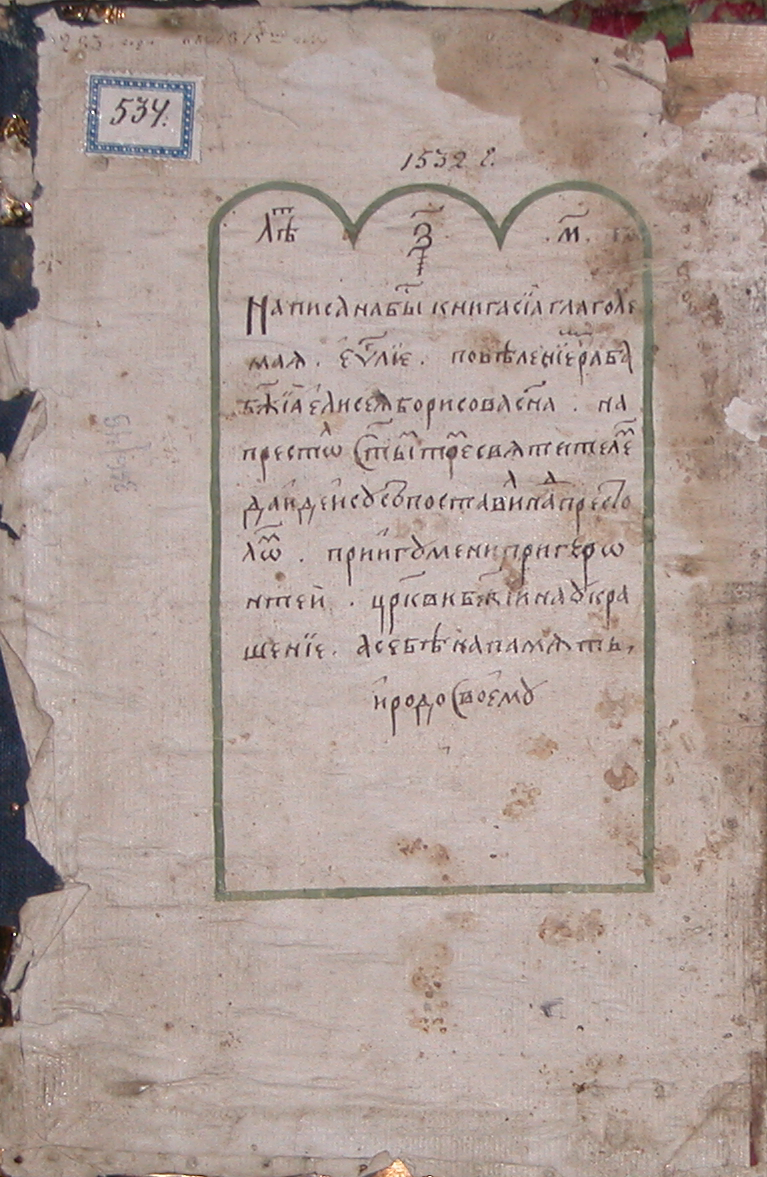 534.
1532 г.
лѣт҃ ҂з҃ м҃.
Написана бы҃ книга сїа глаголе
мая . єѵ҃лїе . повѣленїе раба
бж҃їа єлисея борисова сн҃а . на
престѡл ст҃ы тре святителе
да и деисус поставил над престо
лѡм . при игѹмени при герѡ
нтеи . црк҃ви бж҃іи на ѹкра
шенїе . а себѣ на память,
и родѹ своемѹ